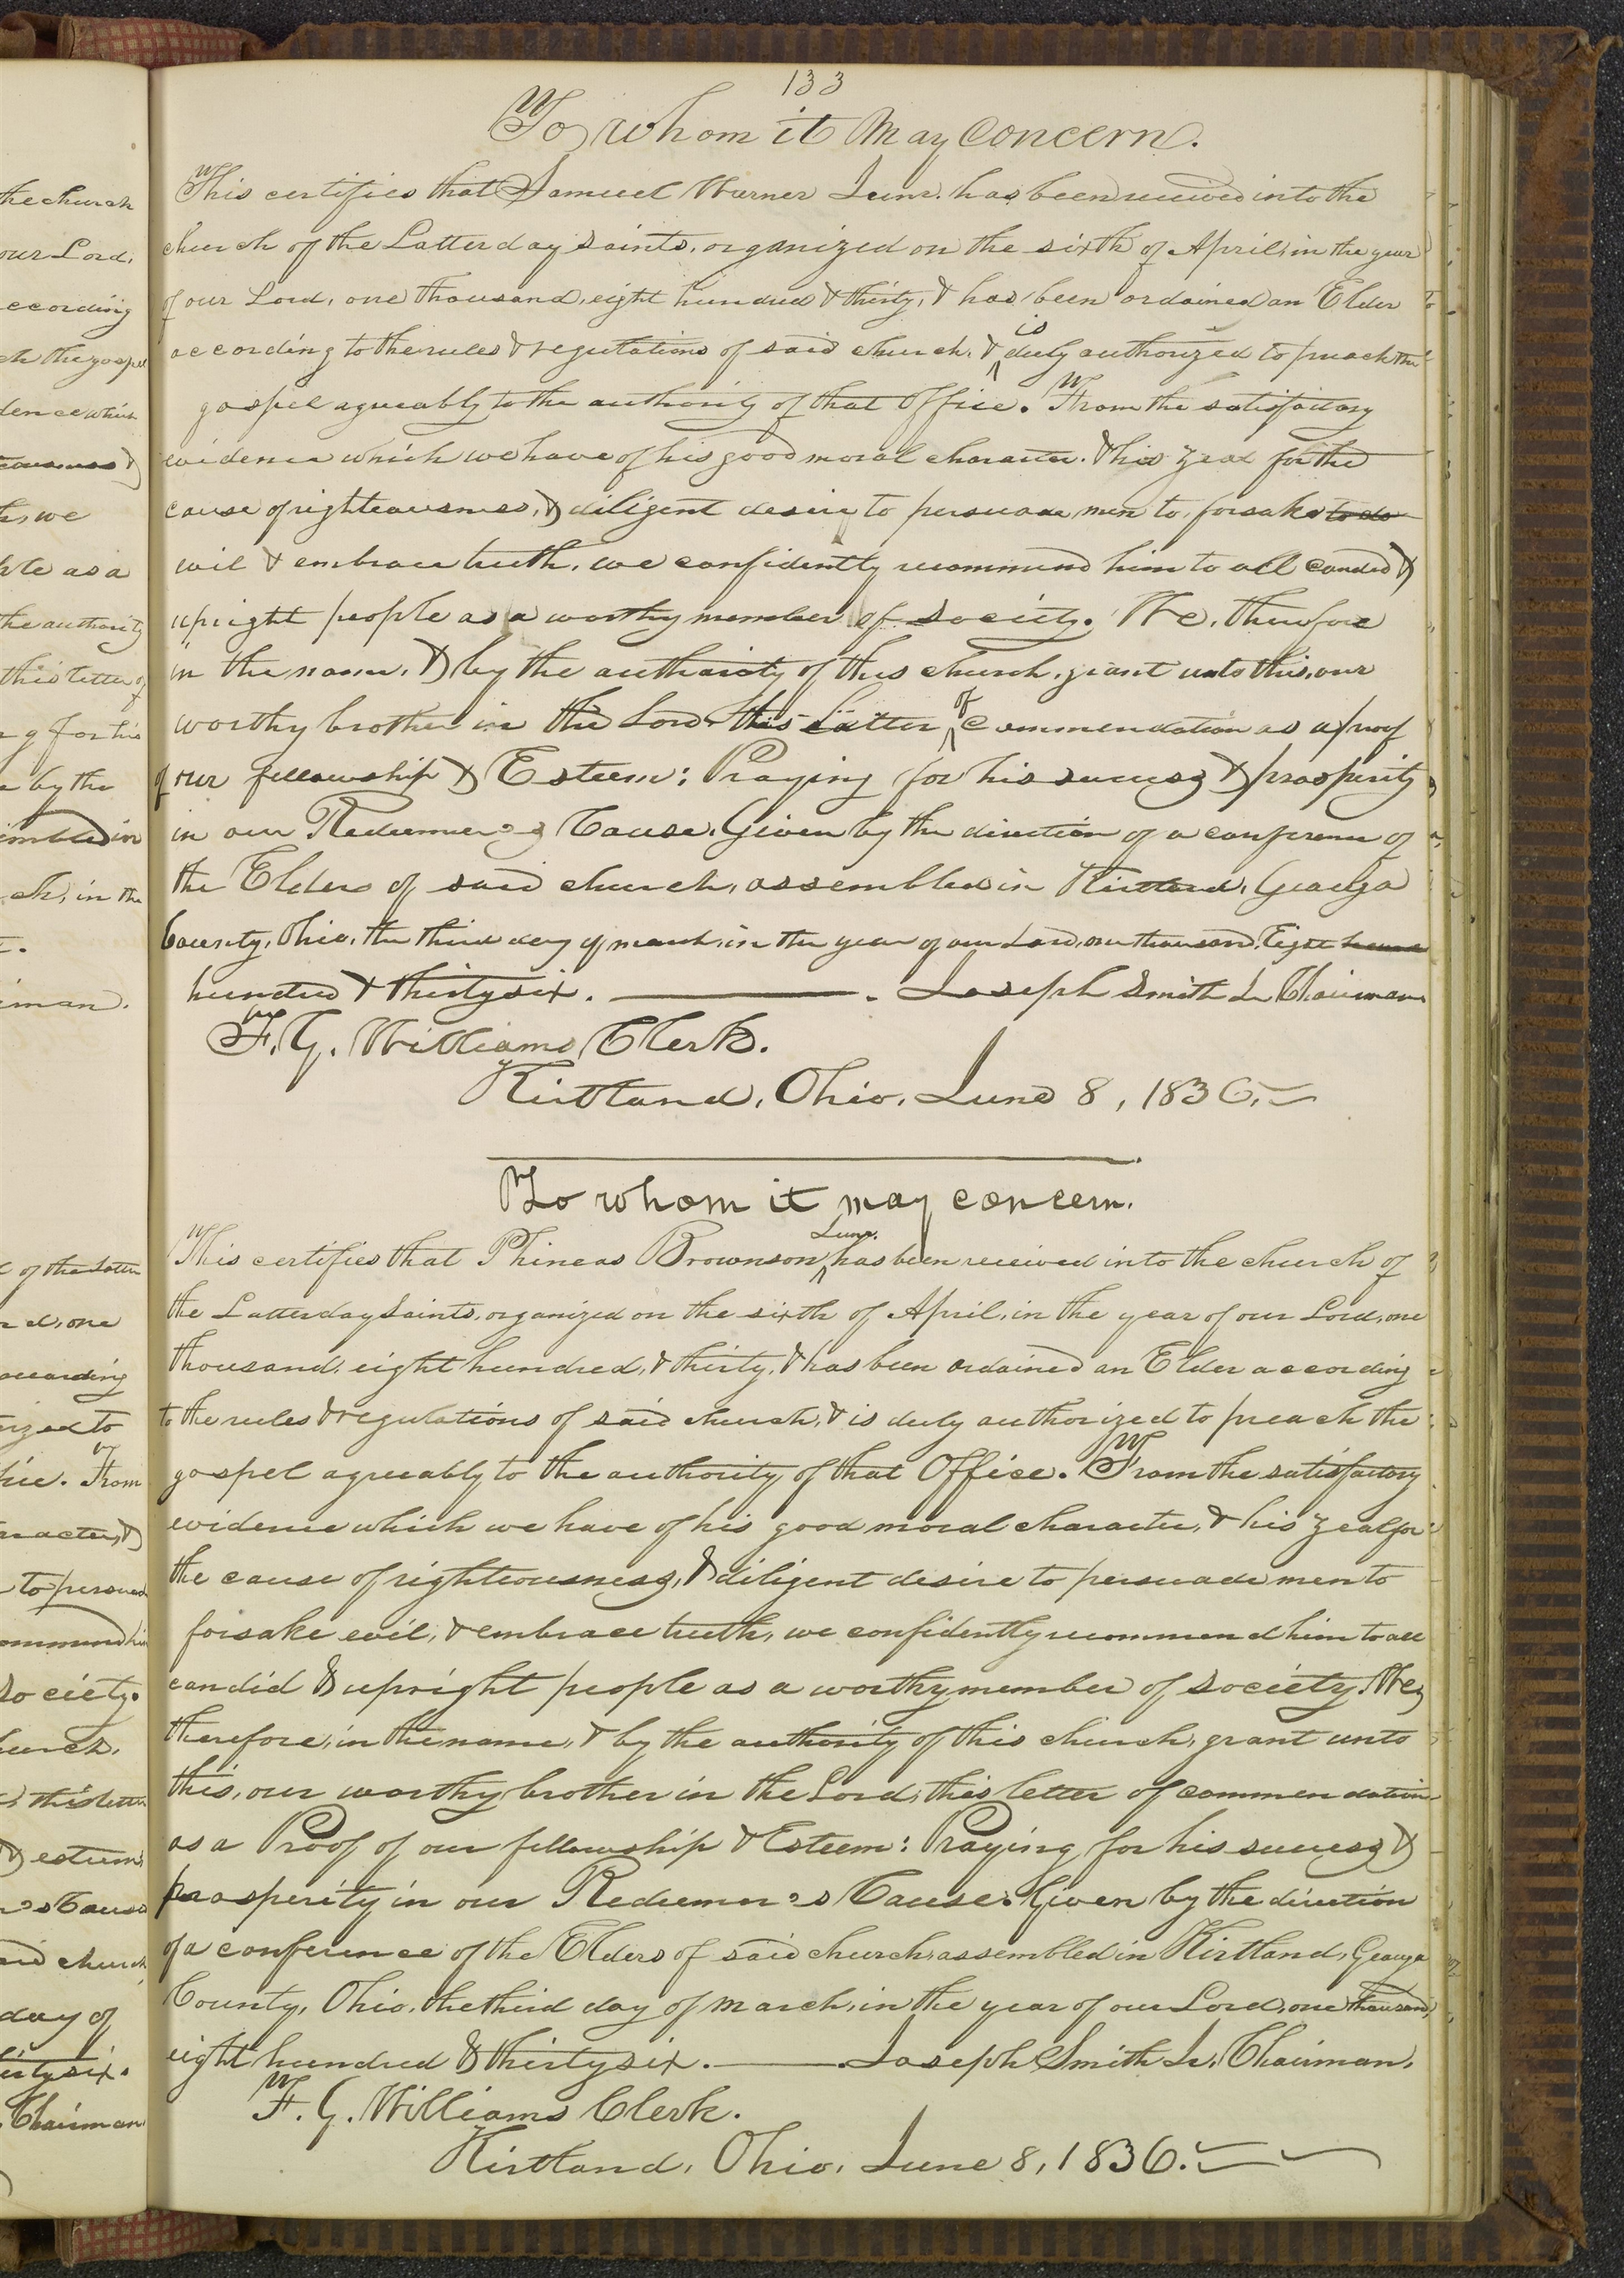 133
To whom it May Concern.
This certifies that Samuel Warner Junr. has been received into the
church of the Latter day Saints, organized on the sixth of April, in the year
of our Lord, one thousand, eight hundred & thirty, & has been ordained an Elder
according to the rules & regulations of said church, & is duly authorized to preach the
gospel agreeably to the authority of that Office. From the satisfactory
evidence which we have of his good moral character, & his zeal for the
cause of righteousness, & diligent desire to persuade men to forsake to do
evil & embrace truth, we confidently recommend him to all candid &
upright people as a worthy member of society. We, therefore
in the name, & by the authority of this church, grant unto this, our
worthy brother in the Lord, this Letter of Commendation as a proof
of our fellowship & Esteem: Praying for his success & prosperity
in our Redeemer's Cause. Given by the direction of a conference of
the Elders of said church, assembled in Kirtland, Geauga
County, Ohio, the third day of march, in the year of our Lord, one thousand, Eight
hundred & thirty six. Joseph Smith Jr. Chairman
F. G. Williams Clerk.
Kirtland, Ohio, June 8, 1836.
To whom it may concern.
This certifies that Phineas Brownson Junr. has been received into the church of
the Latter day Saints, organized on the sixth of April, in the year of our Lord, one
thousand, eight hundred, & thirty, & has been ordained an Elder according
to the rules & regulations of said church, & is duly authorized to preach the
gospel agreeably to the authority of that Office. From the satisfactory
evidence which we have of his good moral character, & his zeal for
the cause of righteousness, & diligent desire to persuade men to
forsake evil, & embrace truth, we confidently recommend him to all
candid & upright people as a worthy member of society. We,
therefore, in the name, & by the authority of this church, grant unto
this, our worthy brother in the Lord, this letter of commendation
as a Proof of our fellowship & Esteem: Praying for his success &
prosperity in our Redeemer's Cause. Given by the direction
of a conference of the Elders of said church, assembled in Kirtland, Geauga
County, Ohio, the third day of march, in the year of our Lord, one thousand,
eight hundred & thirty six. Joseph Smith Jr. Chairman.
F. G. Williams Clerk.
Kirtland, Ohio, June 8, 1836.